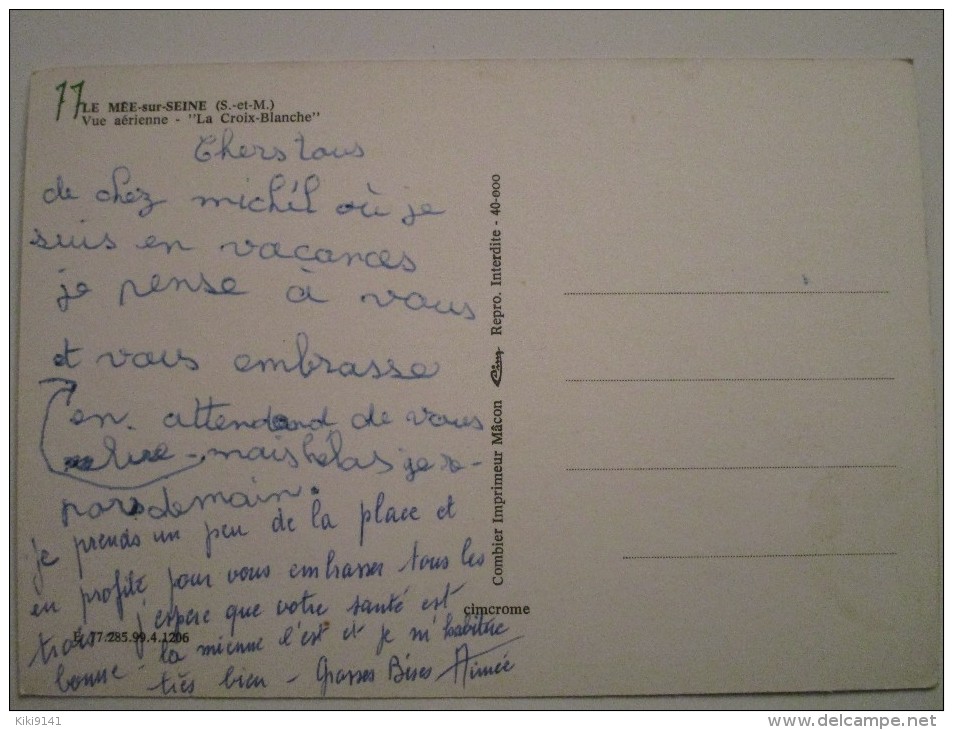 77
LE MÉE-sur-SEINE (S.-et-M.)
Vue aérienne - "La Croix-Blanche"
Chers tous
de chez michél où je
suis en vacances
je pense à vous
et vous embrasse
en attendand de vous
lire - mais hélas je re-
pars demain.
je prends un peu de la place et
en profite pour vous embrasser tous les
trois j'espère que votre santé est
bonne - la mienne l'est et je m'habitue
très bien - Grosses Bises Aimée
E. 77.285.99.4.1206
Combier Imprimeur Mâcon Cim Repro. Interdite - 40-000
cimcrome
Kiki9141
delcampe.net